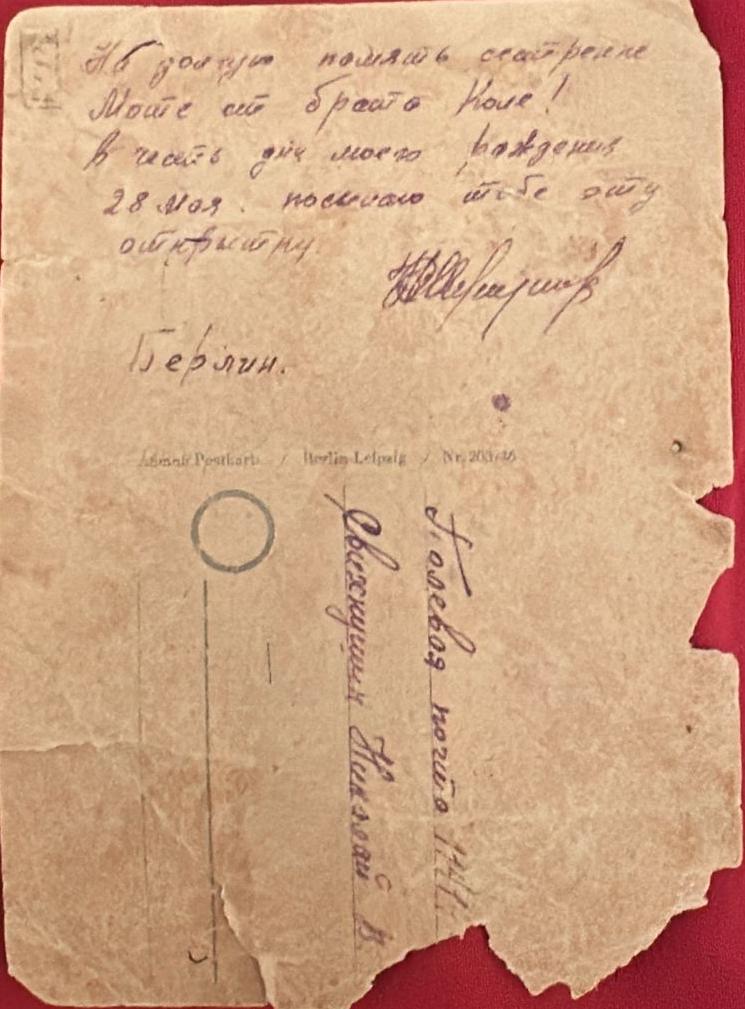 На долгую память сестренке
Моте от брата Коле!
В честь дня моего рождения
28 мая. посылаю тебе эту
открытку
Берлин.
Postkarte / Berlin-Leipzig / Nr.
Полевая почта
Николай В